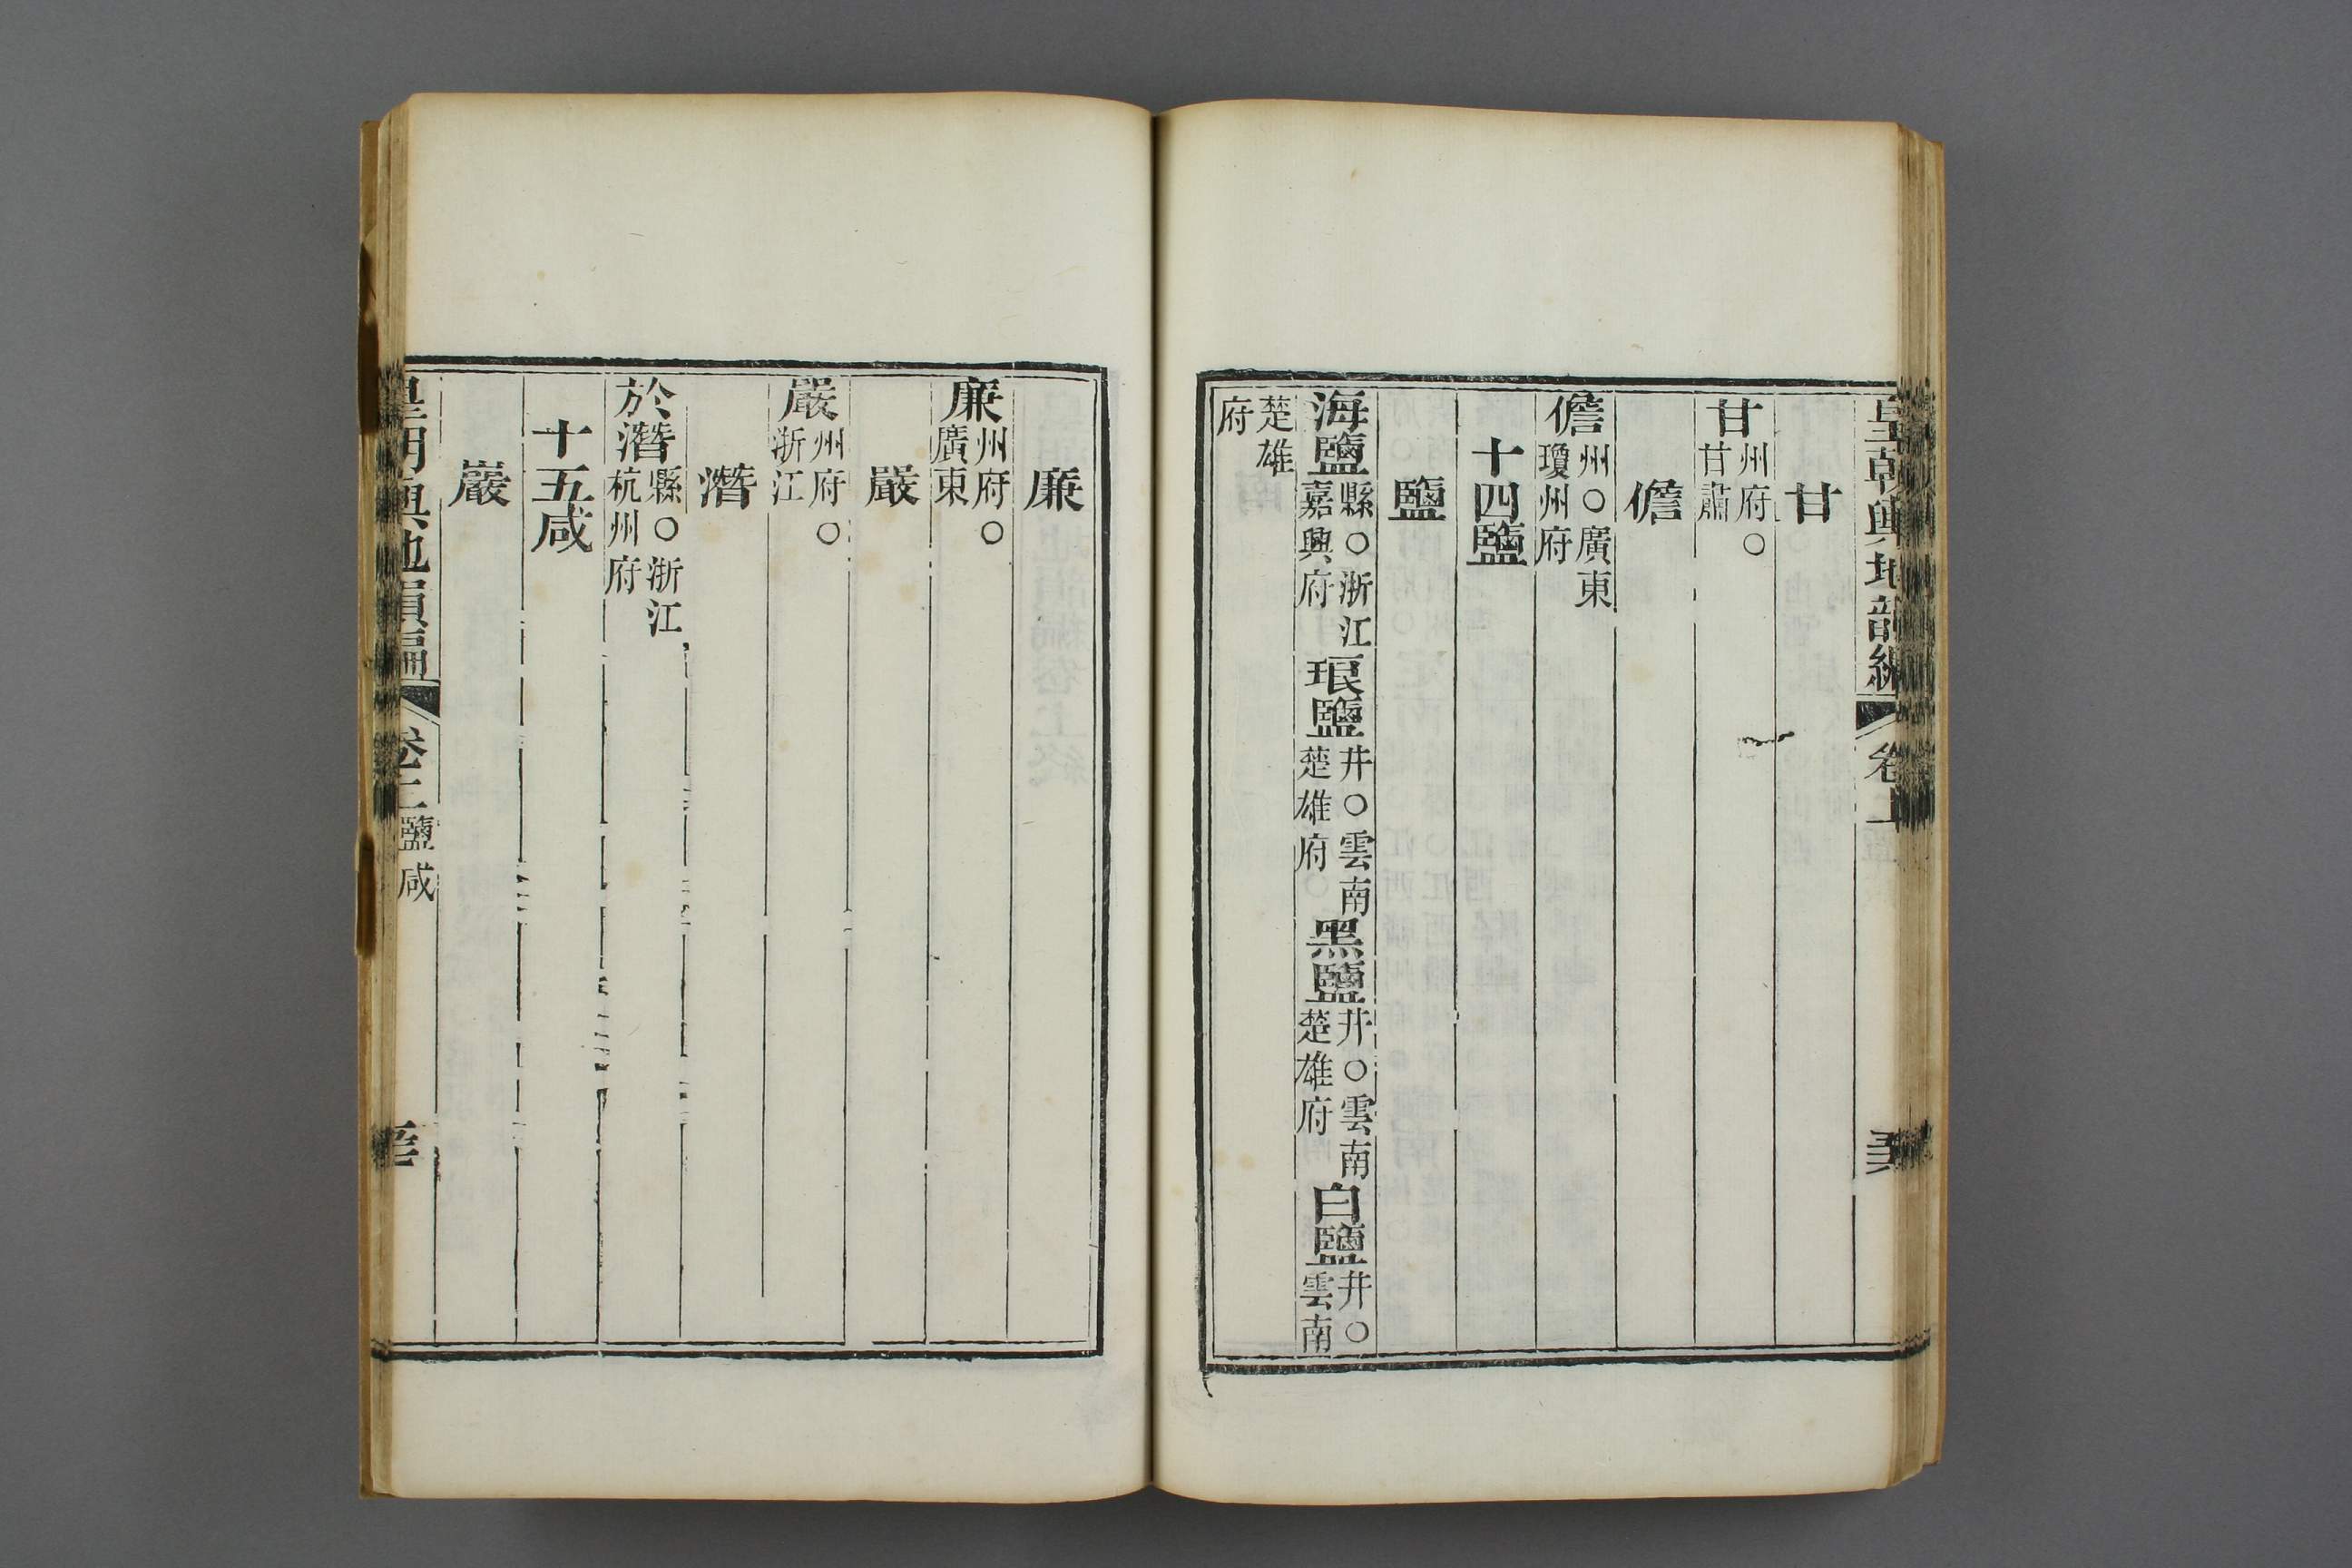 皇朝輿地韻編 卷上
甘
甘州府○甘肅
儋
儋州○廣東瓊州府
十四鹽
鹽
海鹽縣○浙江嘉興府琅鹽井○雲南楚雄府黑鹽井○雲南楚雄府白鹽井○雲南
楚雄府
廉
廉州府○廣東
嚴
嚴州府○浙江
潛
於潛縣○浙江杭州府
十五咸
巖
皇朝輿地韻編 卷上 鹽咸